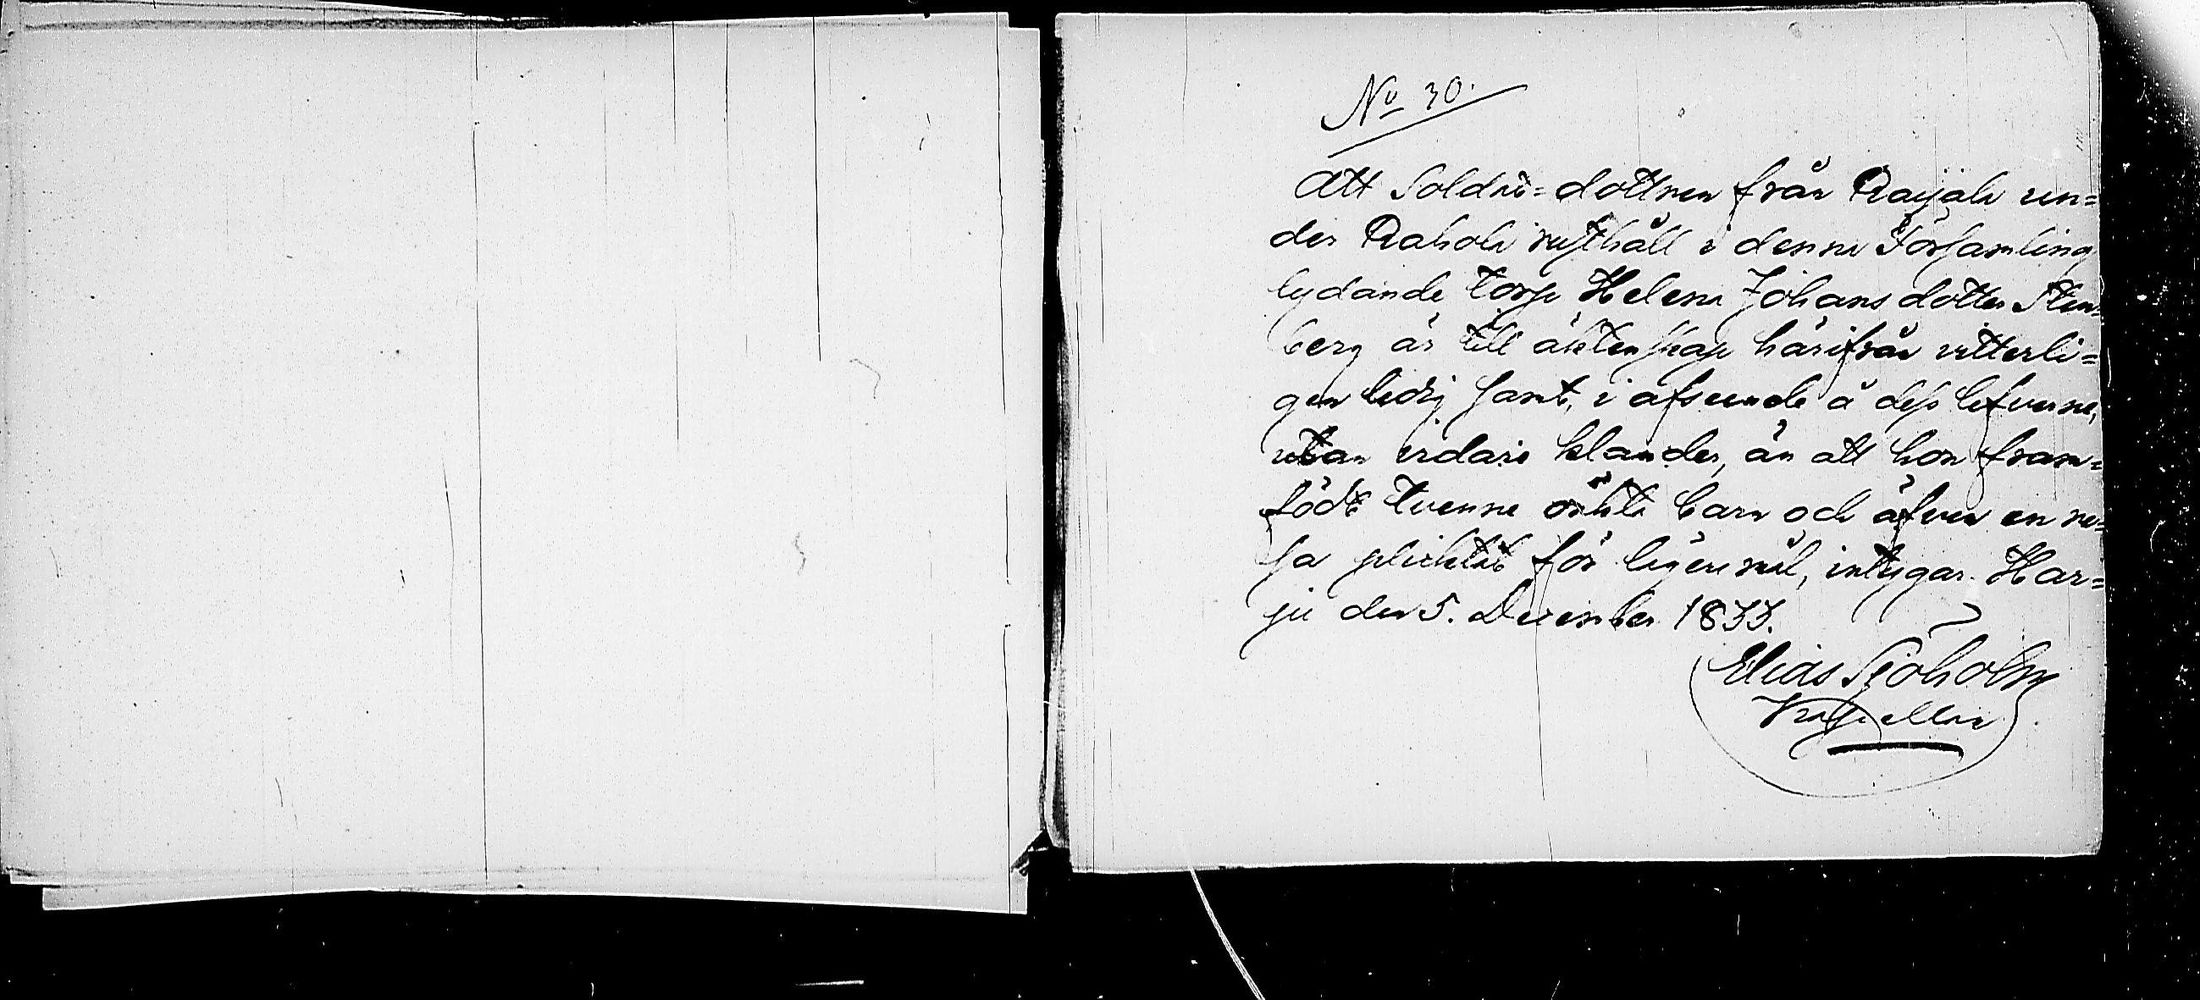 No 30.
Att Soldats=dottren från Rayala un=
der Rahola rusthåll i denna Församling
lydande torp Helena Johans dotter Sten=
berg är till äktenskap härifrån vitterli=
gen ledig samt, i afseende å dess lefverne,
utan vidare klander, än att hon fram=
födt tvenne oäkta barn och äfven en re=
sa pliktat för lägersmål, intygar. Har=
ju den 5. December 1833.
Elias Sjöholm
Kapellan